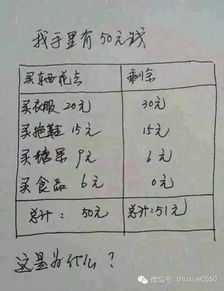 我手里有50元钱
买东西花去 剩余
买衣服 20元 30元
买拖鞋 15元 15元
买糖果 9元 6元
买食品 6元 0元
总计: 50元 总计:51元
这是为什么?
微信号: shuxue0550